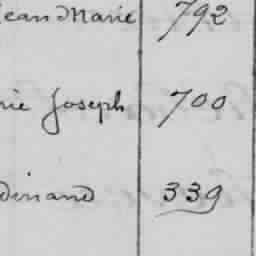 Jean Marie 792
rie Joseph 700
dinand 339